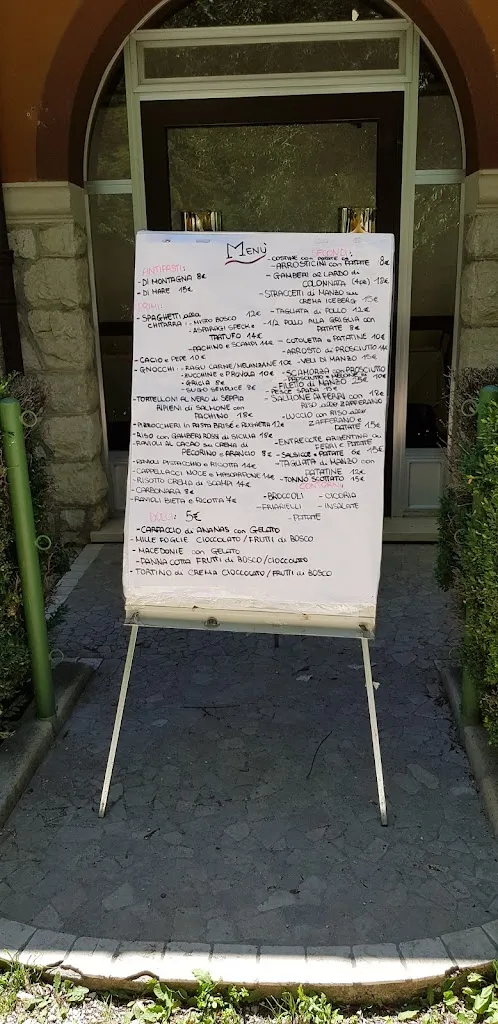 MENÙ
ANTIPASTI:
- DI MONTAGNA 8€
- DI MARE 15€
PRIMI:
- SPAGHETTI alla 12€
CHITARRA: - MISTO BOSCO
- ASPARAGI SPECK
TARTUFO 14€
- PACHINO e SCAMPI 14€
- CACIO e PEPE 10€
- GNOCCHI: - RAGU CARNE/MELANZANE 10€
- ZUCCHINE e PROVOLA 10€
- GRICIA 8€
- SUGO SEMPLICE 8€
- TORTELLONI AL NERO di SEPPIA
RIPIENI di SALMONE con
PACHINO 18€
- PIZZOCCHERI in PASTA BRISÉ e 12€
- RISO con GAMBERI ROSSI di SICILIA 18€
- RAVIOLI AL CACAO su CREMA di
PECORINO e ARANCIO 8€
PISTACCHIO e RICOTTA 14€
- CAPPELLACCI NOCE e MASCARPONE 14€
- RISOTTO CREMA di SCAMPI 14€
- CARBONARA 8€
- RAVIOLI BIETA e RICOTTA 7€
DOLCI: 5€
- CARPACCIO di ANANAS con GELATO
- MILLE FOGLIE CIOCCOLATO/FRUTTI di BOSCO
- MACEDONIE con GELATO
- PANNA COTTA FRUTTI di BOSCO/CIOCCOLATO
- TORTINO di CREMA CIOCCOLATO/FRUTTI di BOSCO
SECONDI:
- COSTINE con PATATE 8€
- ARROSTICINI con PATATE 8€
- GAMBERI al LARDO di
COLONNATA (4pz) 18€
- STRACCETTI di MANZO su
CREMA ICEBERG 15€
- TAGLIATA di POLLO 12€
- 1/2 POLLO ALLA GRIGLIA con
PATATE 8€
- COTOLETTA e PATATINE 10€
- ARROSTO di PROSCIUTTO 14€
- VELI DI MANZO 15€
- SCAMORZA con PROSCIUTTO
PROSCIUTTO e MELONE 10€
- FILETTO di MANZO 25€
PESCE SPADA 15€
- SALMONE AI FERRI con 18€
RISO allo ZAFFERANO
- LUCCIO con RISO allo
ZAFFERANO e
PATATE 15€
- ENTRECOTE ARGENTINA ai
FERRI e PATATE
- SALSICCE e PATATE 6€ 15€
- TAGLIATA di MANZO con
PATATINE 12€
- TONNO SCOTTATO 15€
CONTORNI:
- BROCCOLI - CICORIA
- FRIARIELLI - INSALATE
- PATATE